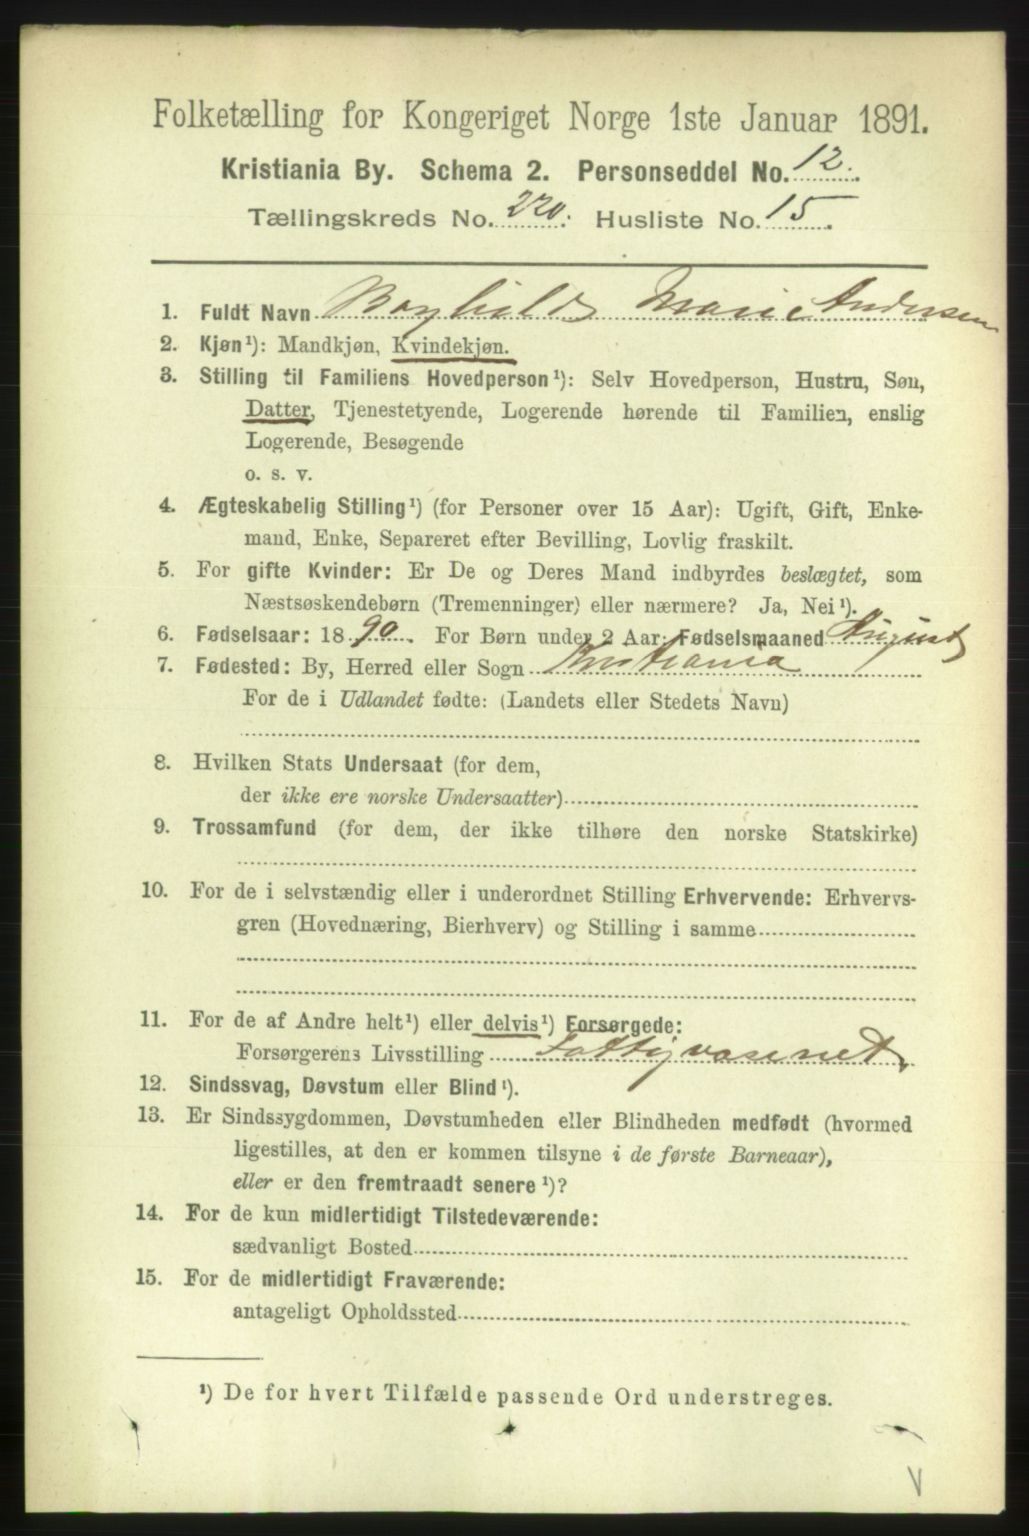 Folketælling for Kongeriget Norge 1ste Januar 1891.
Kristiania By. Schema 2. Personseddel No. 12.
Tællingskreds No. 220. Husliste No. 15.
1. Fuldt Navn Borghild Marie Andersen
2. Kjøn¹): Mandkjøn, Kvindekjøn.
3. Stilling til Familiens Hovedperson¹): Selv Hovedperson, Hustru, Søn,
Datter, Tjenestetyende, Logerende hørende til Familien, enslig
Logerende, Besøgende
o. s. v.
4. Ægteskabelig Stilling¹) (for Personer over 15 Aar): Ugift, Gift, Enke-
mand, Enke, Separeret efter Bevilling, Lovlig fraskilt.
5. For gifte Kvinder: Er De og Deres Mand indbyrdes beslægtet, som
Næstsøskendebørn (Tremenninger) eller nærmere? Ja, Nei¹).
6. Fødselsaar: 1890. For Børn under 2 Aar: Fødselsmaaned August
7. Fødested: By, Herred eller Sogn Kristiania
For de i Udlandet fødte: (Landets eller Stedets Navn)
8. Hvilken Stats Undersaat (for dem,
der ikke ere norske Undersaatter)
9. Trossamfund (for dem, der ikke tilhøre den norske Statskirke)
10. For de i selvstændig eller i underordnet Stilling Erhvervende: Erhvervs-
gren (Hovednæring, Bierhverv) og Stilling i samme
11. For de af Andre helt¹) eller delvis¹) Forsørgede:
Forsørgerens Livsstilling Fattigvæsenet
12. Sindssvag, Døvstum eller Blind¹).
13. Er Sindssygdommen, Døvstumheden eller Blindheden medfødt (hvormed
ligestilles, at den er kommen tilsyne i de første Barneaar),
eller er den fremtraadt senere¹)?
14. For de kun midlertidigt Tilstedeværende:
sædvanligt Bosted
15. For de midlertidigt Fraværende:
antageligt Opholdssted
¹) De for hvert Tilfælde passende Ord understreges.
V